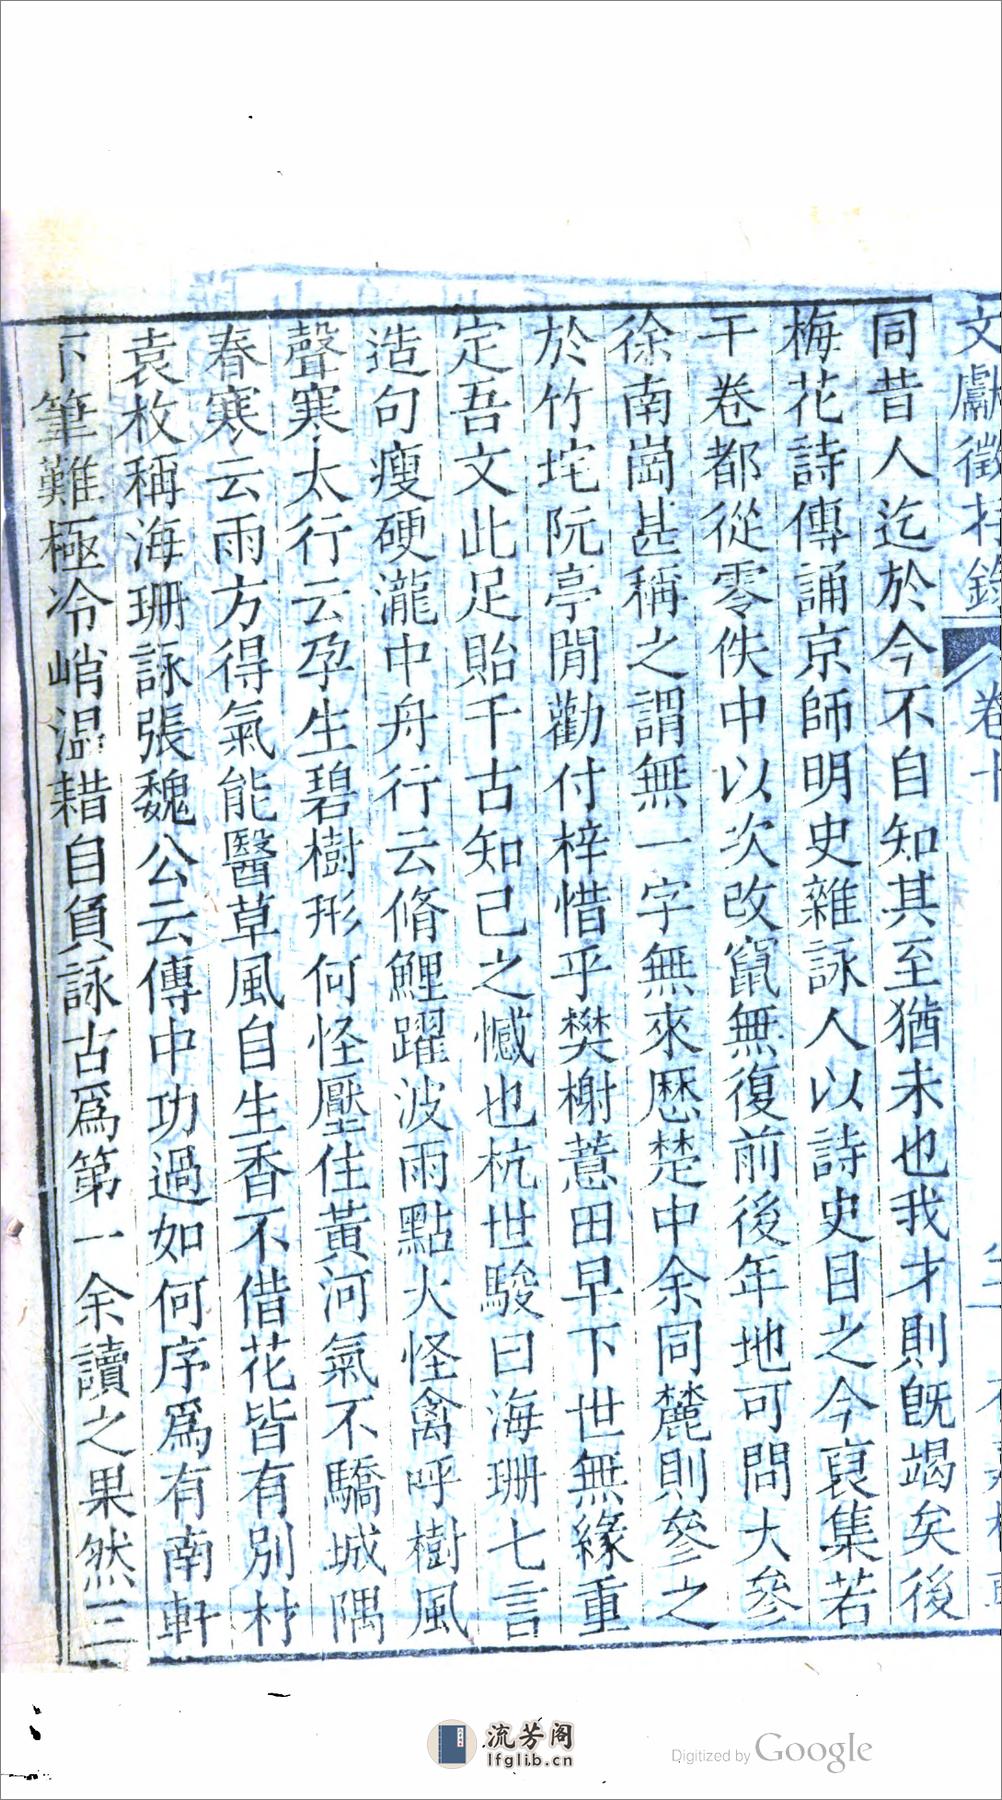 文獻徵存錄 卷十
同昔人迄於今不自知其至猶未也我才則既竭矣後
梅花詩傳誦京師明史雜詠人以詩史目之今裒集若
干卷都從零佚中以次改竄無復前後年地可問大參
徐南崗甚稱之謂無一字無來歷楚中余同麓則參之
於竹垞阮亭閒勸付梓惜乎樊榭薏田早下世無緣重
定吾文此足貽千古知己之憾也杭世駿曰海珊七言
造句瘦硬瀧中舟行云脩鯉躍波雨點大怪禽呼樹風
聲寒太行云孕生碧樹形何怪壓住黃河氣不驕城隅
春寒云雨方得氣能醫草風自生香不借花皆有別材
袁枚稱海珊詠張魏公云傳中功過如何序爲有南軒
下筆難極冷峭溫藉自負詠古爲第一余讀之果然三
流芳阁
lfglib.cn
Digitized by Google